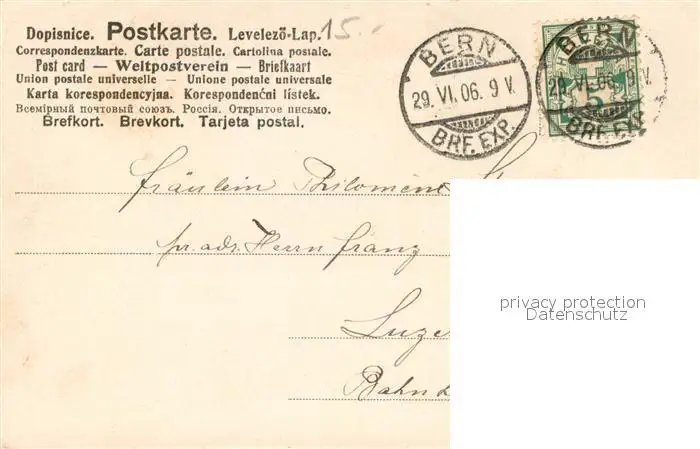 Dopisnice. Postkarte. Levelező-Lap.
15.-
Correspondenzkarte. Carte postale. Cartolina postale.
Post card — Weltpostverein — Briefkaart
Union postale universelle — Unione postale universale
Karta korespondencyjna. Korespondenční lístek.
Всемірный почтовый союзъ. Россія. Открытое письмо.
Brefkort. Brevkort. Tarjeta postal.
BERN
29. VI. 06. 9 V.
BRF. EXP.
BERN
29. VI. 06. 9 V.
BRF. EXP.
5
Fräulein Philomene
pr. adr. Herrn Franz
Luze
Bahn
privacy protection
Datenschutz